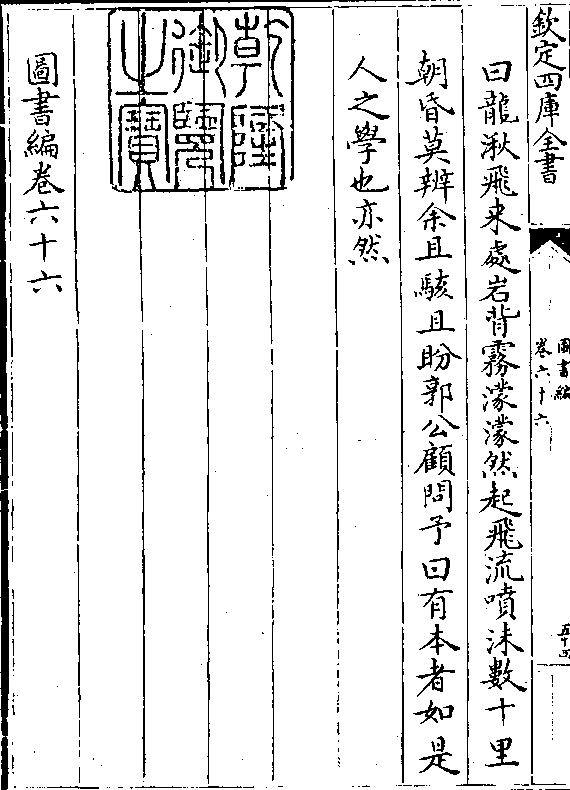 欽定四庫全書
圖書編
卷六十六
五十四
曰龍湫飛来處岩背霧濛濛然起飛流噴沫數十里
朝昏莫辨余且駭且盼郭公顧問予曰有本者如是
人之學也亦然
乾隆
御覽
之寶
圖書編卷六十六